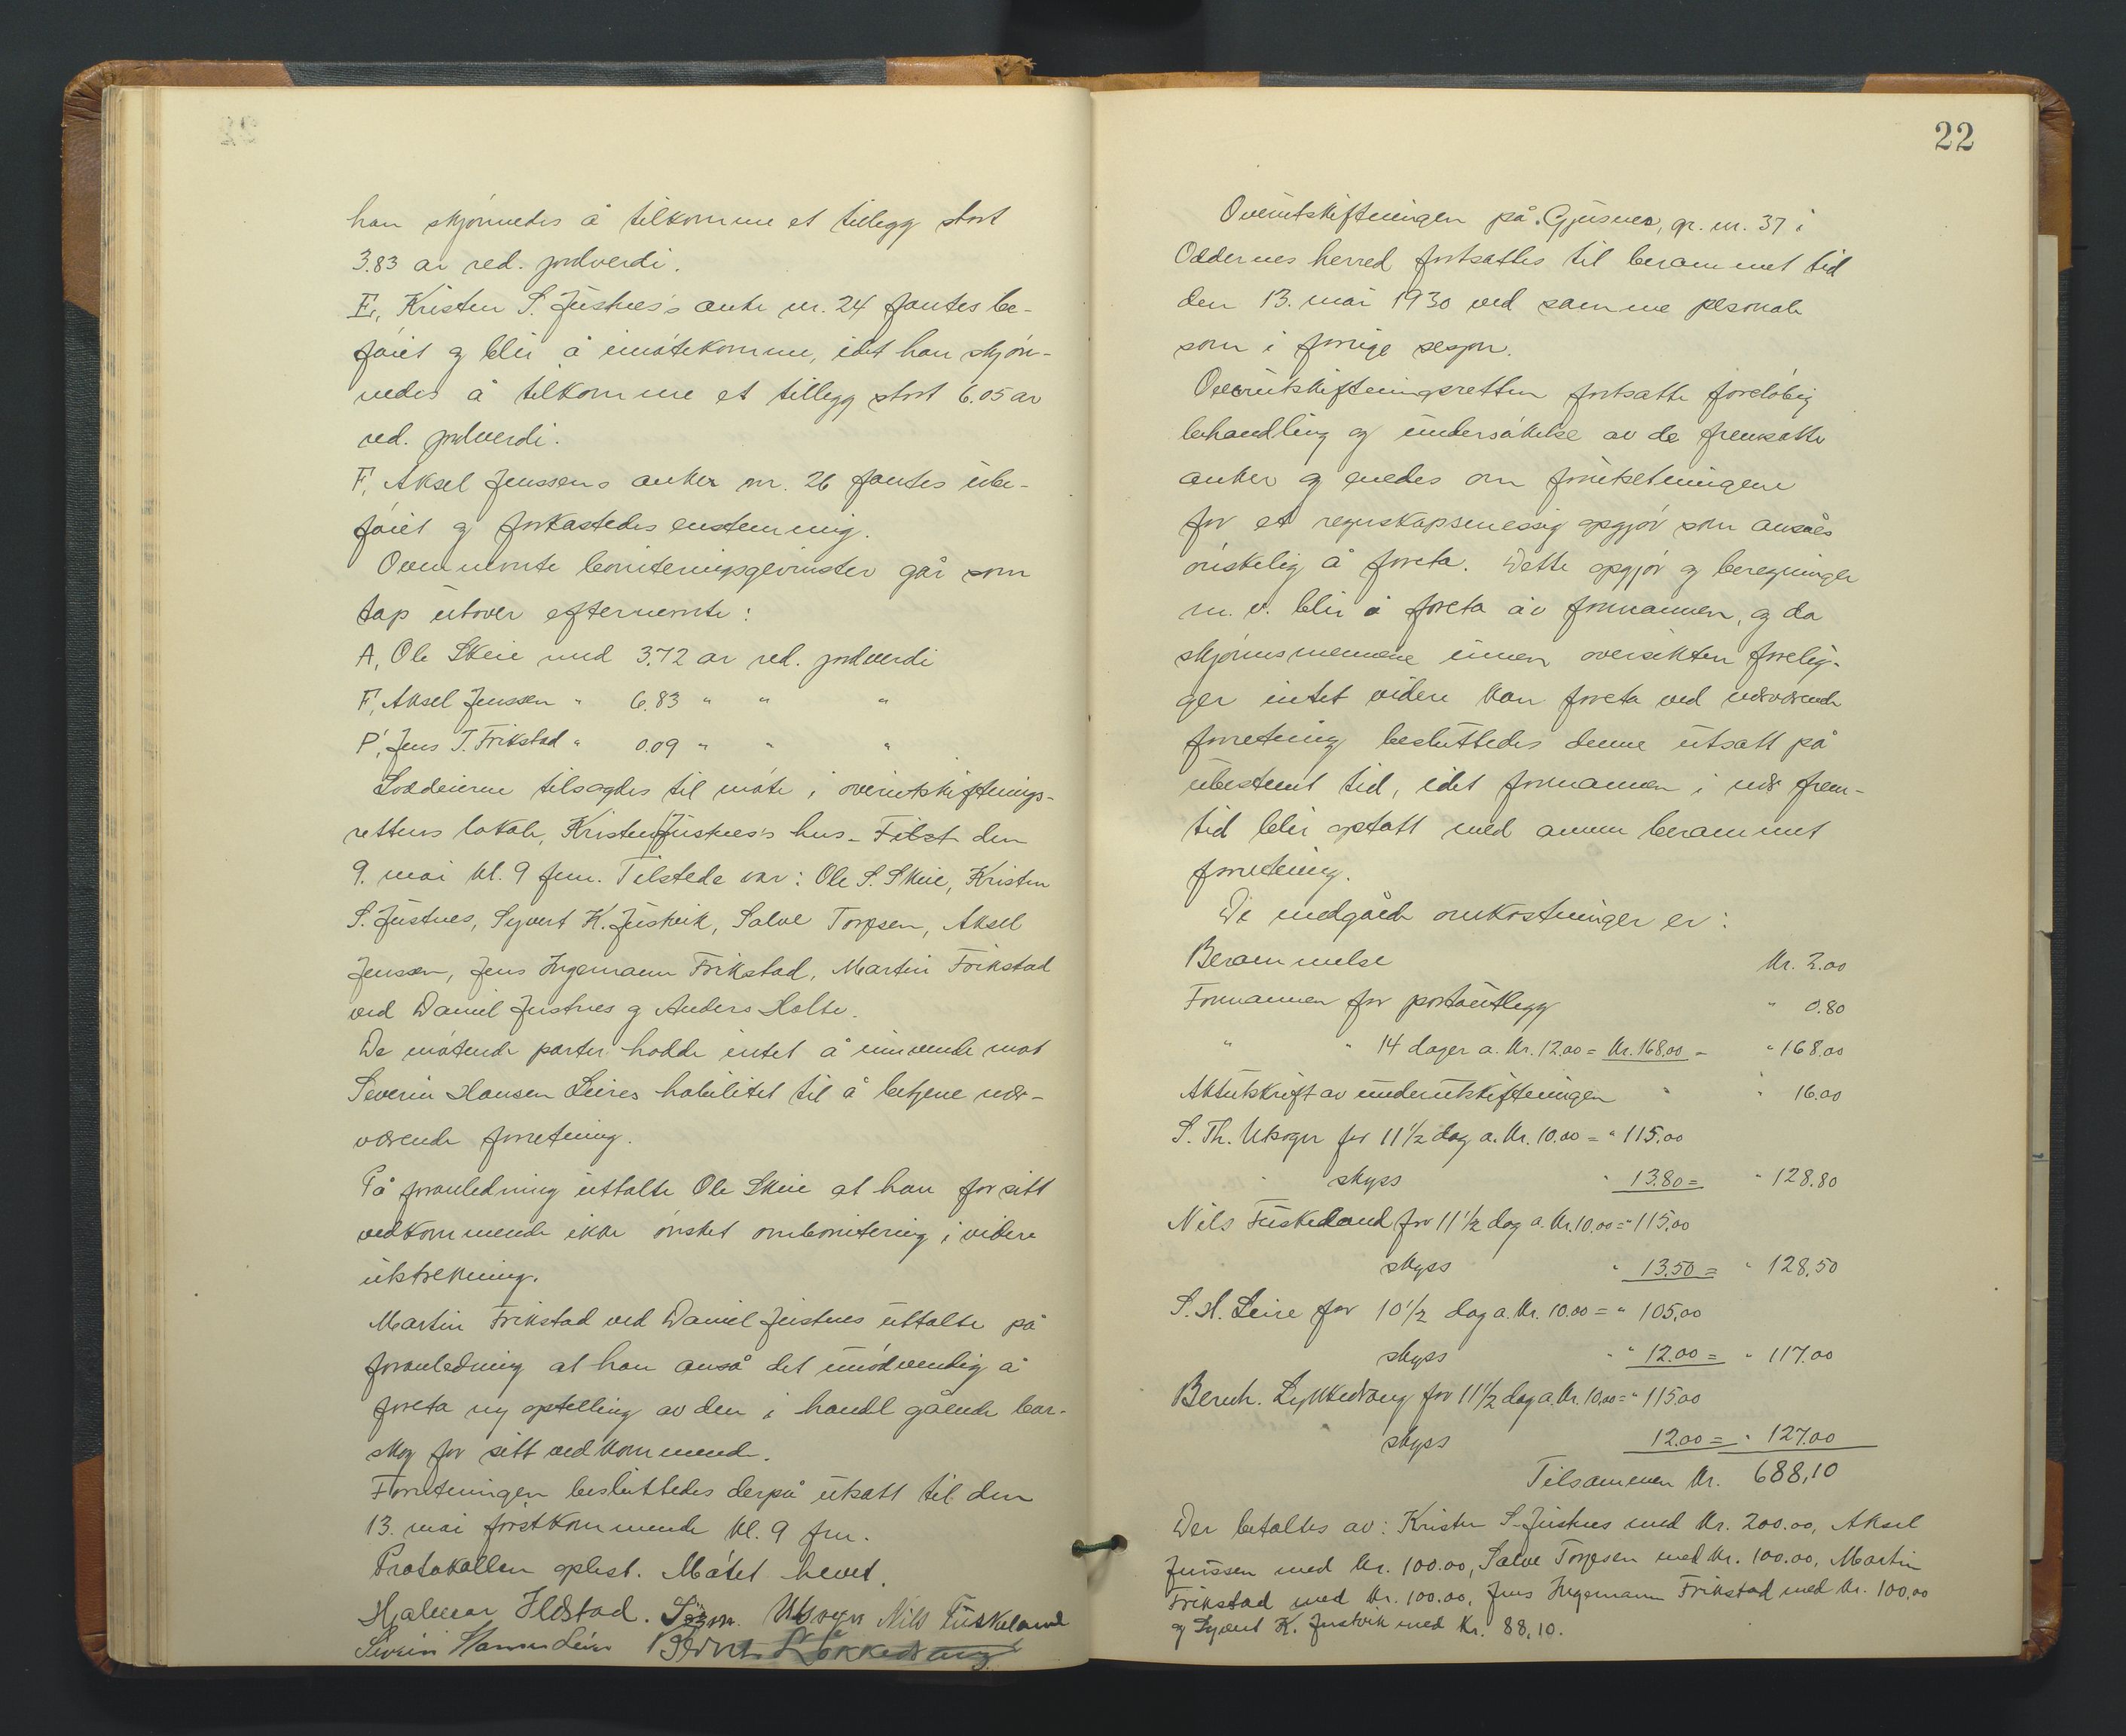 han skjønnedes å tilkomme et tillegg stort
3.83 ar red. jordverdi.
E, Kristen S. Justnes's anke nr. 24 fantes be-
føiet og blir å imøtekomme, idet han skjøn-
nedes å tilkomme et tillegg stort 6.05 ar
red. jordverdi.
F, Aksel Jenssens anker nr. 26 fantes ube-
føiet og forkastedes enstemmig.
Ovennevnte boniteringsgevinster går som
tap utover efternevnte:
A, Ole Skeie med 3.72 ar red. jordverdi
F, Aksel Jenssen " 6.83 " " "
P, Jens T. Frikstad " 0.09 " " "
Loddeierne tilsagdes til møte i overutskiftnings-
rettens lokale, Kristen Justnes's hus - Filst den
9. mai kl. 9 fm. Tilstede var: Ole S. Skeie, Kristen
S. Justnes, Syvert K. Justvik, Salve Torjesen, Aksel
Jenssen, Jens Ingemann Frikstad, Martin Frikstad
ved Daniel Justnes og Anders Holte.
De møtende parter hadde intet å innvende mot
Severin Hansen Leires habilitet til å betjene nær-
værende forretning.
På foranledning uttalte Ole Skeie at han for sitt
vedkommende ikke ønsket ombonitering i videre
utstrekning.
Martin Frikstad ved Daniel Justnes uttalte på
foranledning at han anså det unødvendig å
foreta ny optelling av den i handl gående bar-
skog for sitt vedkommende.
Forretningen besluttedes derpå utsatt til den
13. mai førstkommende kl. 9 fm.
Protokollen oplest. Møtet hevet.
Hjalmar Ildstad. Nils Fuskeland
Severin Hansen Leire Bernt Løkkedrang
22
Overutskiftningen på Gjusnes, gr. nr. 37 i
Oddernes herred fortsattes til berammet tid
den 13. mai 1930 ved samme personale
som i forrige sesjon.
Overutskiftningsretten fortsatte foreløbig
behandling og undersøkelse av de fremsatte
anker og enedes om forutsetningene
for et regnskapsmessig opgjør som ansåes
ønskelig å foreta. Dette opgjør og beregninger
m. v. blir å foreta av formannen, og da
skjønnsmennene innen oversikten forelig-
ger intet videre kan foreta ved nærværende
forretning besluttedes denne utsatt på
ubestemt tid, idet formannen i nær frem-
tid blir optatt med annen berammet
forretning.
De medgåede omkostninger er:
Berammelse kr. 2.00
Formannen for portoutlegg " 0.80
" " 14 dager a. kr. 12.00 = kr. 168.00 = " 168.00
Aktutskrift av underutskiftningen " " 16.00
S. Th. Ubsger for 11 1/2 dag a. kr. 10.00 = " 115.00
" skyss " 13.80 = " 128.80
Nils Fuskeland for 11 1/2 dag a. kr. 10.00 = " 115.00
skyss " 13.50 = " 128.50
S. H. Leire for 10 1/2 dag a. kr. 10.00 = " 105.00
skyss " " 12.00 = " 117.00
Bernh. Løkkedrang for 11 1/2 dag a. kr. 10.00 = " 115.00
skyss 12.00 = " 127.00
Tilsammen kr. 688.10
Der betaltes av: Kristen S. Justnes med kr. 200.00, Aksel
Jenssen med kr. 100.00, Salve Torjesen med kr. 100.00, Martin
Frikstad med kr. 100.00, Jens Ingemann Frikstad med kr. 100.00
og Syvert K. Justvik med kr. 88.10.